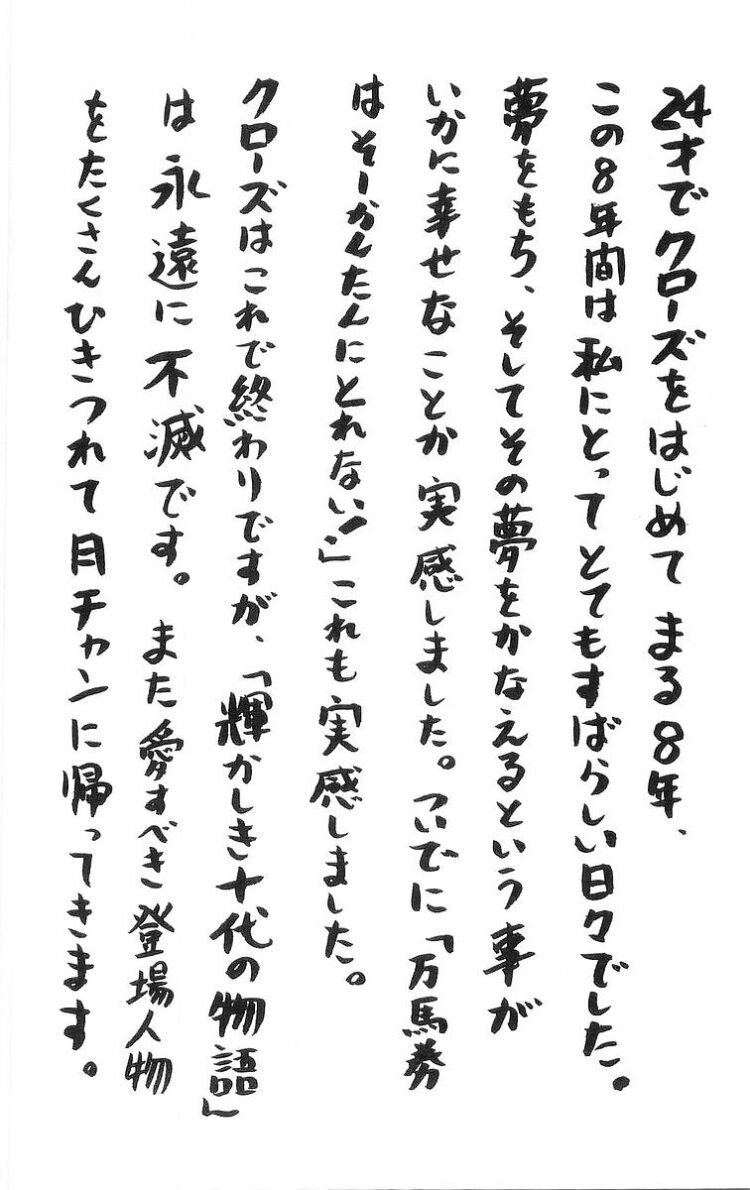 24才でクローズをはじめてまる8年、
この8年間は私にとってとてもすばらしい日々でした。
夢をもち、そしてその夢をかなえるという事が
いかに幸せなことか実感しました。ついでに「万馬券
はそーかんたんにとれない!」これも実感しました。
クローズはこれで終わりですが、「輝かしき十代の物語」
は永遠に不滅です。また愛すべき登場人物
をたくさんひきつれて月チャンに帰ってきます。